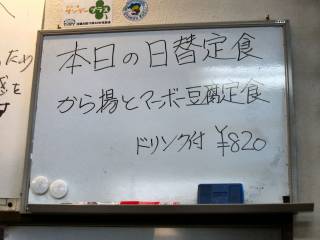 本日の日替定食
から揚とマーボー豆腐定食
ドリンク付 ¥820